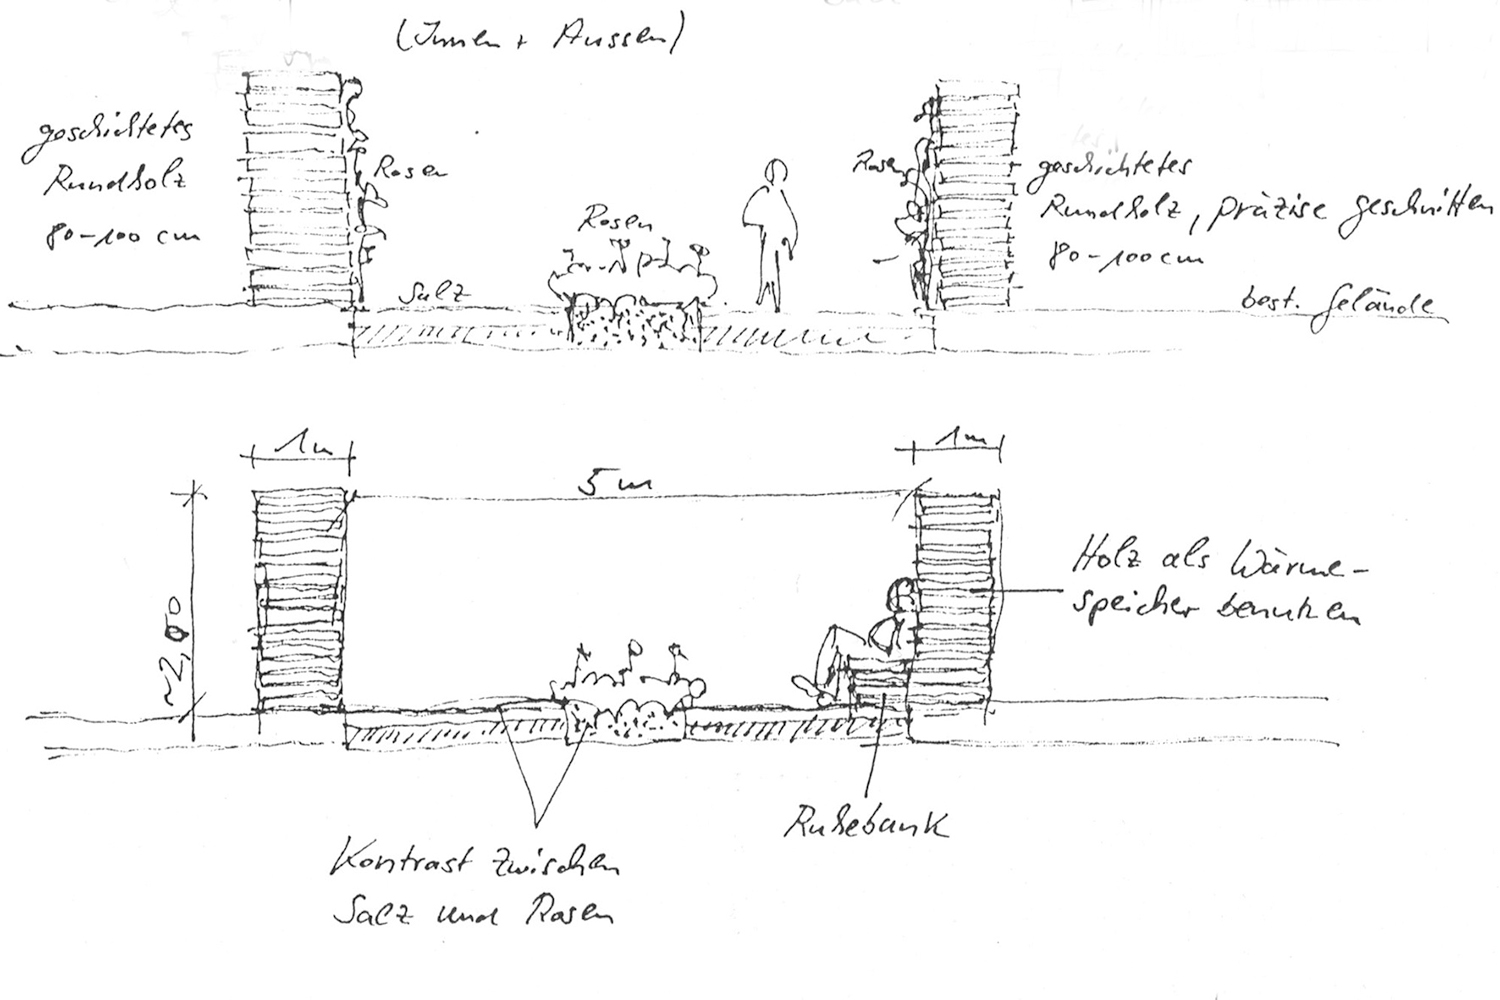 (Innen + Aussen)
geschichtetes
Rundholz
80-100 cm
Rosen
Salz
Rosen
Rosen
geschichtetes
Rundholz, präzise geschnitten
80-100 cm
best. Gelände
1m
5 m
1m
~2,00
Holz als Wärme-
speicher benutzen
Ruhebank
Kontrast zwischen
Salz und Rosen